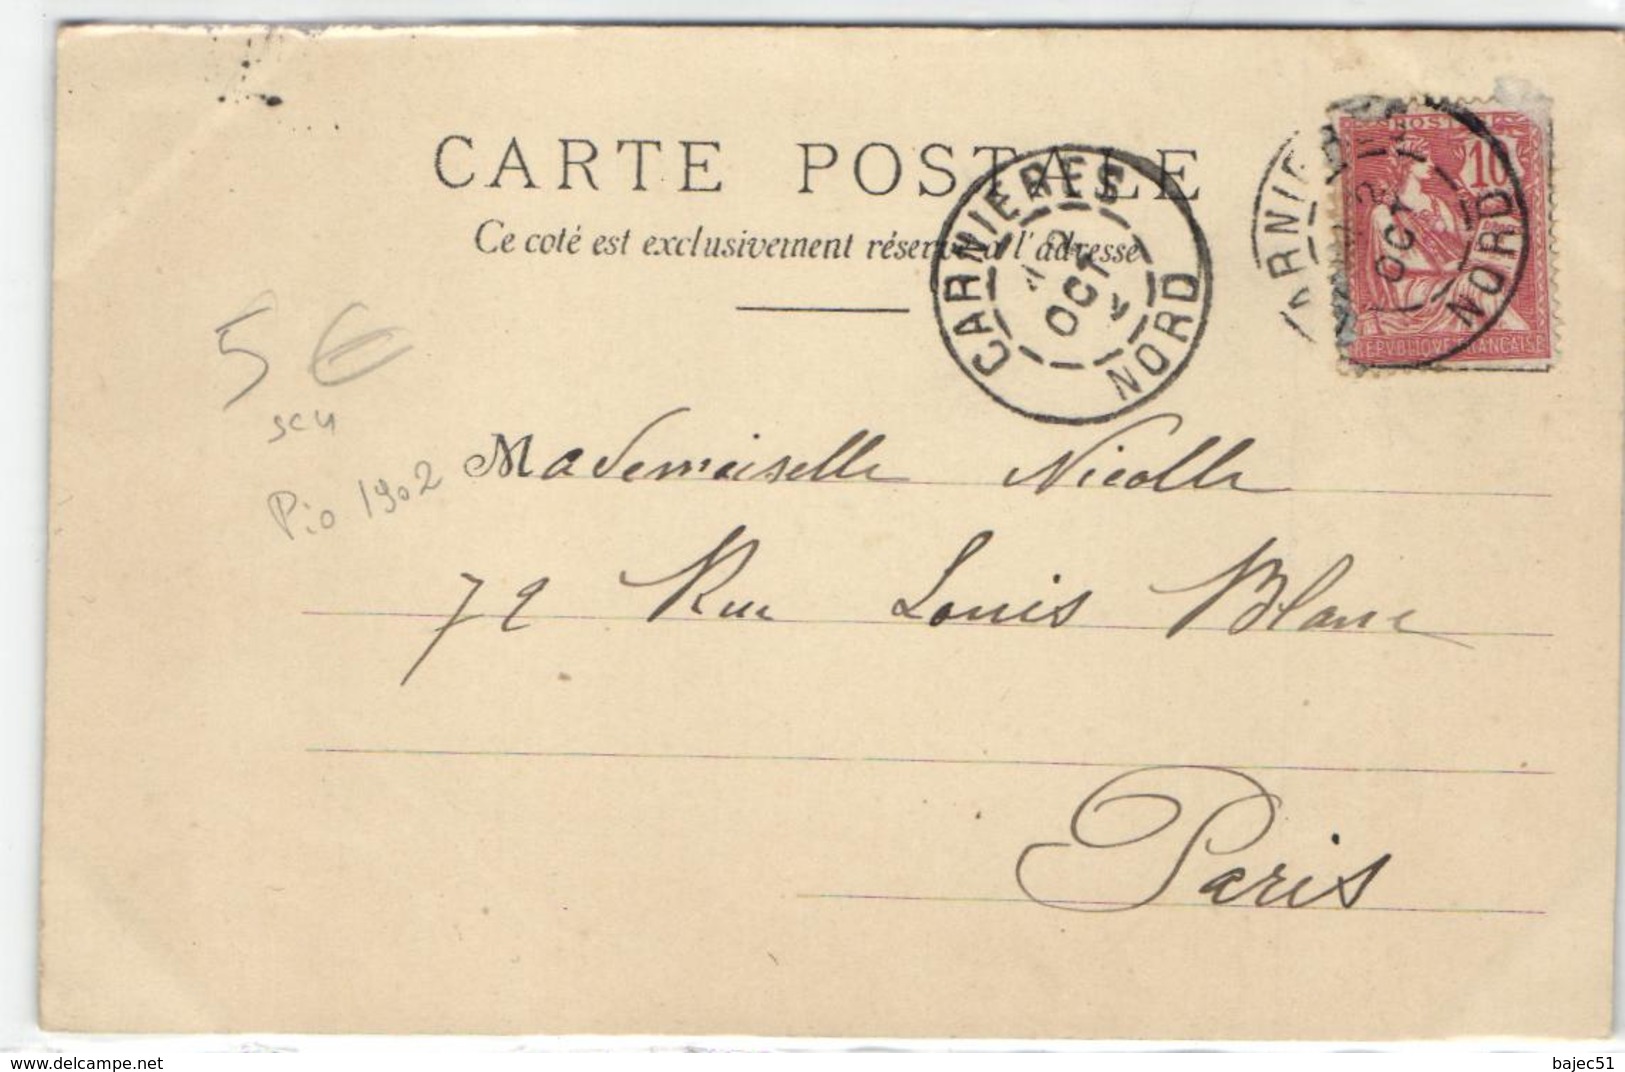 CARTE POSTALE
Ce coté est exclusivement réservé à l'adresse
CARNIERES
OCT
NORD
POSTES
10
OCT
NORD
REPVBLIQVE FRANCAISE
5 €
scu
Pio 1902
Mademoiselle Nicolle
72 Rue Louis Blanc
Paris
www.delcampe.net
bajec51